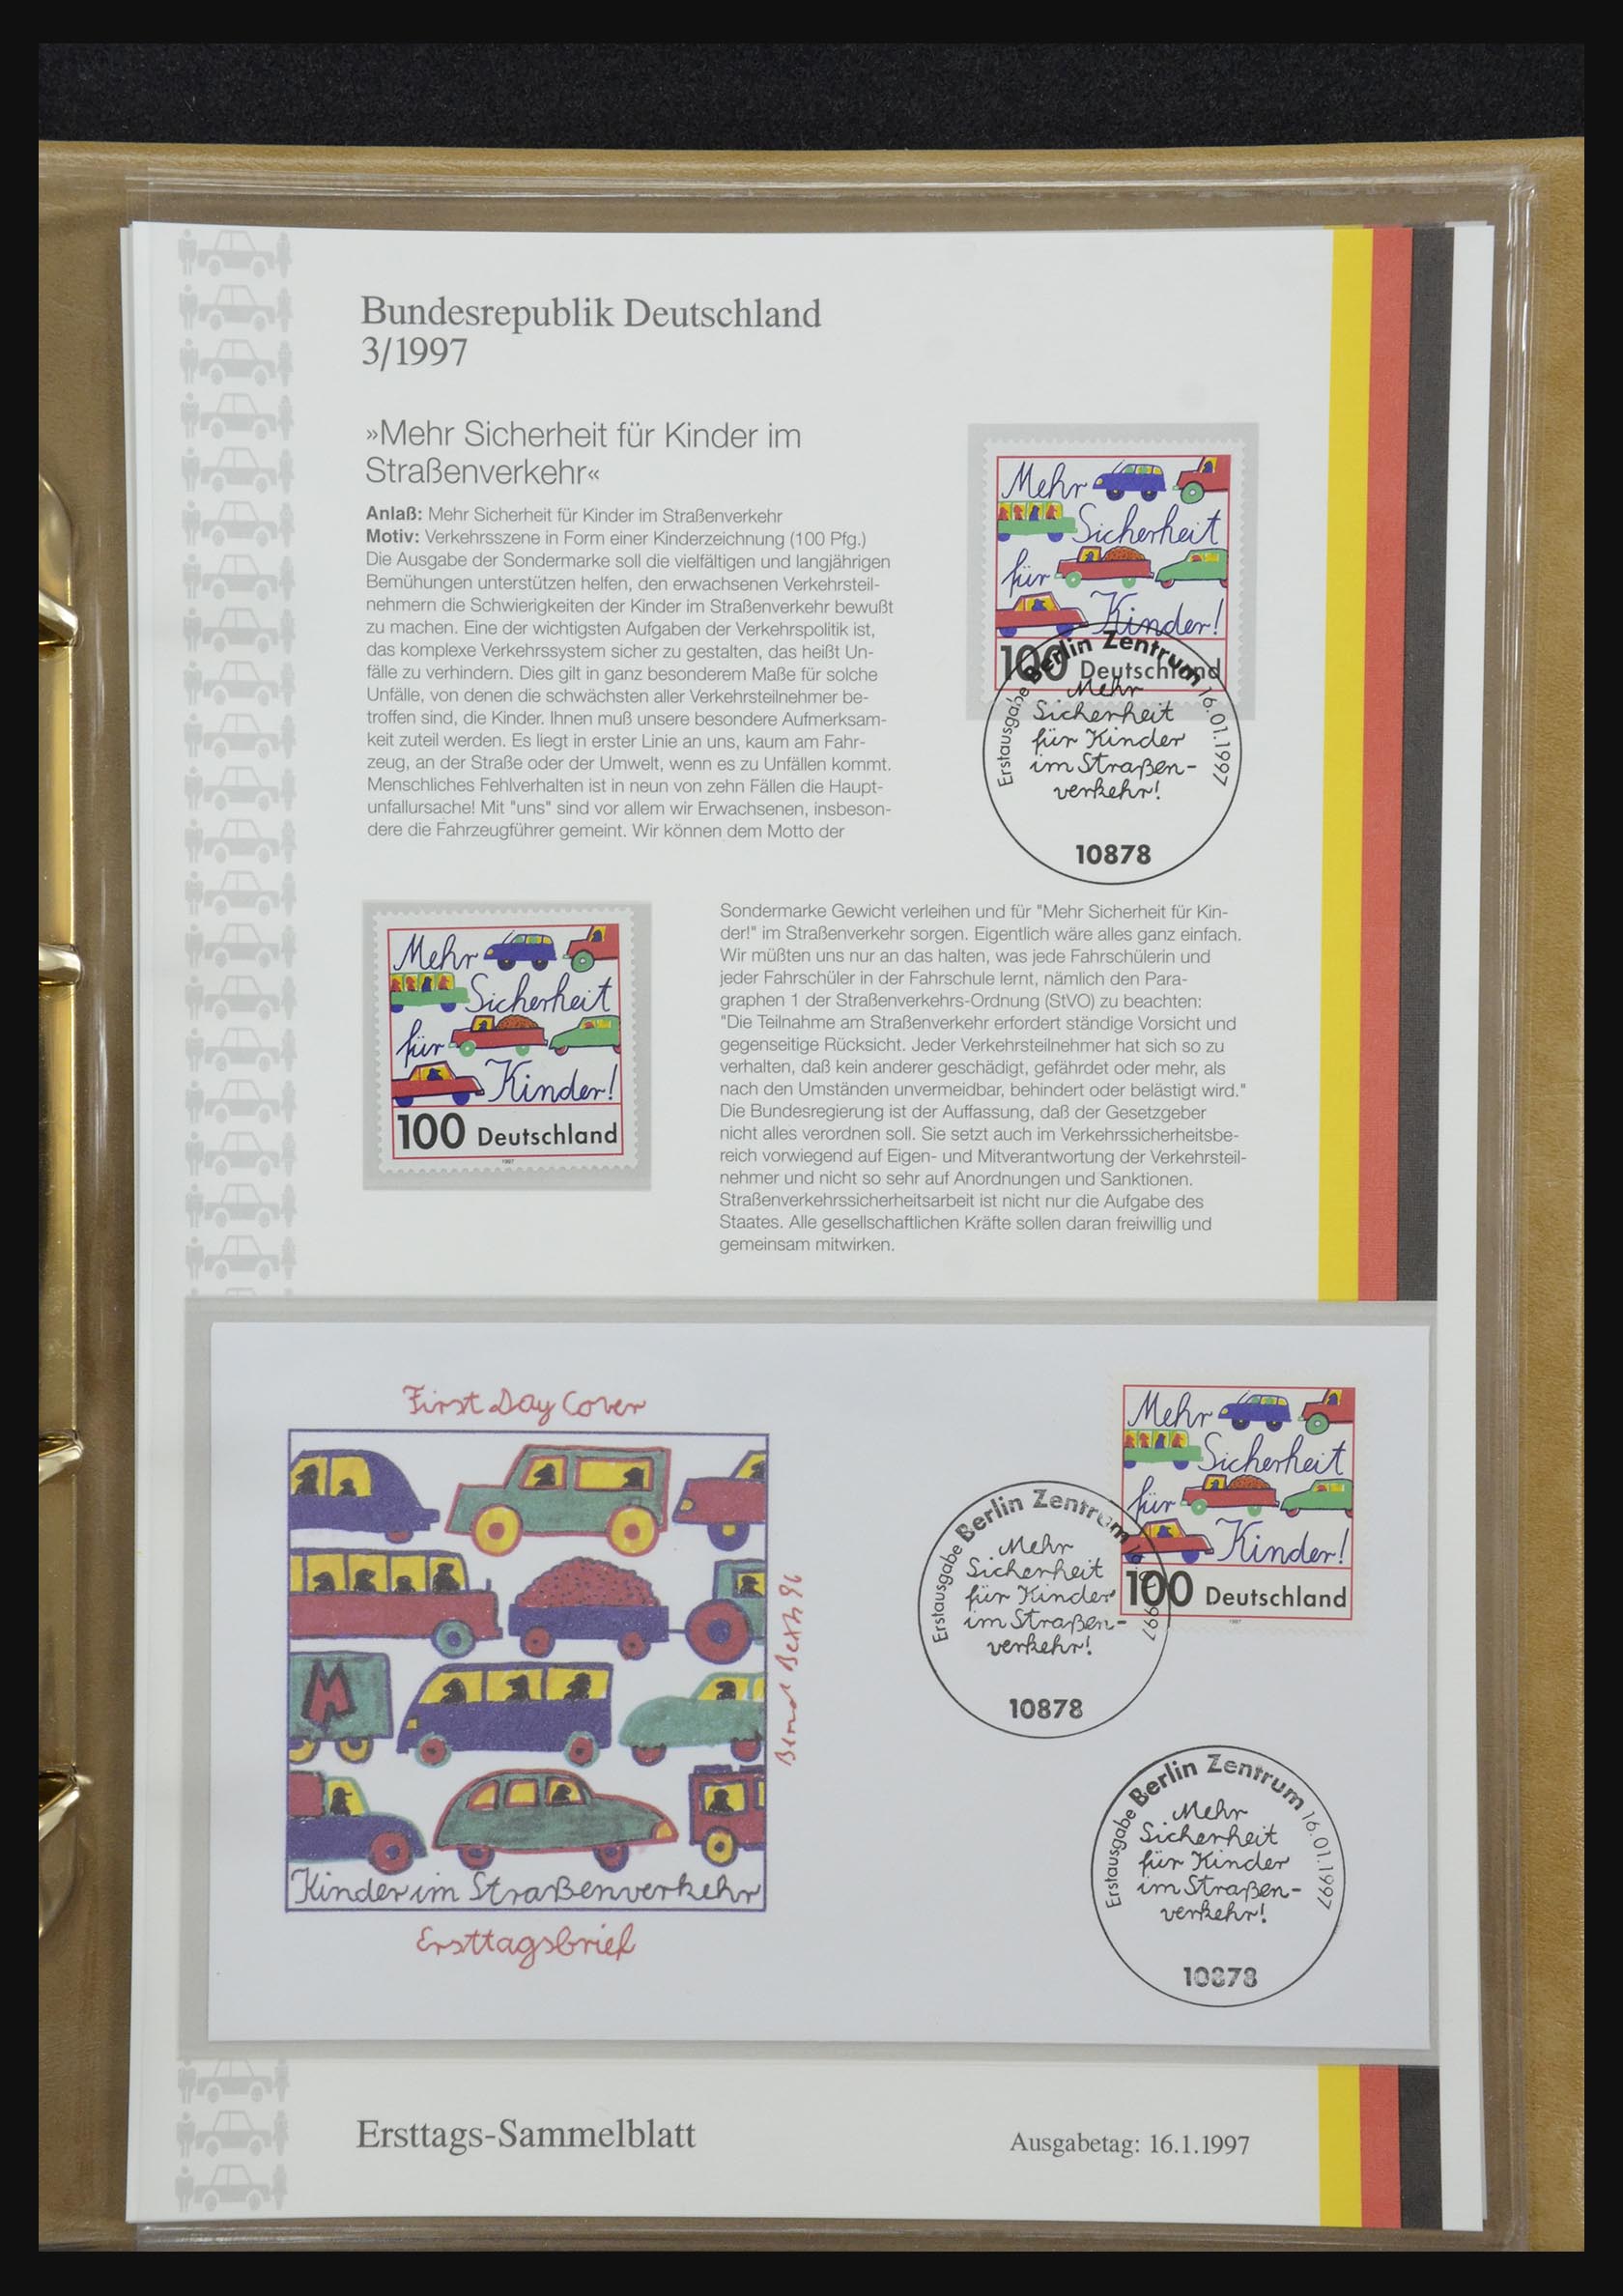 Bundesrepublik Deutschland
3/1997
»Mehr Sicherheit für Kinder im
Straßenverkehr«
Anlaß: Mehr Sicherheit für Kinder im Straßenverkehr
Motiv: Verkehrsszene in Form einer Kinderzeichnung (100 Pfg.)
Die Ausgabe der Sondermarke soll die vielfältigen und langjährigen
Bemühungen unterstützen helfen, den erwachsenen Verkehrsteil-
nehmern die Schwierigkeiten der Kinder im Straßenverkehr bewußt
zu machen. Eine der wichtigsten Aufgaben der Verkehrspolitik ist,
das komplexe Verkehrssystem sicher zu gestalten, das heißt Un-
fälle zu verhindern. Dies gilt in ganz besonderem Maße für solche
Unfälle, von denen die schwächsten aller Verkehrsteilnehmer be-
troffen sind, die Kinder. Ihnen muß unsere besondere Aufmerksam-
keit zuteil werden. Es liegt in erster Linie an uns, kaum am Fahr-
zeug, an der Straße oder der Umwelt, wenn es zu Unfällen kommt.
Menschliches Fehlverhalten ist in neun von zehn Fällen die Haupt-
unfallursache! Mit "uns" sind vor allem wir Erwachsenen, insbeson-
dere die Fahrzeugführer gemeint. Wir können dem Motto der
Mehr
Sicherheit
für
Kinder!
100 Deutschland
Erstausgabe Berlin Zentrum 16.01.1997
Mehr
Sicherheit
für Kinder
im Straßen-
verkehr!
10878
Mehr
Sicherheit
für
Kinder!
100 Deutschland
1997
Sondermarke Gewicht verleihen und für "Mehr Sicherheit für Kin-
der!" im Straßenverkehr sorgen. Eigentlich wäre alles ganz einfach.
Wir müßten uns nur an das halten, was jede Fahrschülerin und
jeder Fahrschüler in der Fahrschule lernt, nämlich den Para-
graphen 1 der Straßenverkehrs-Ordnung (StVO) zu beachten:
"Die Teilnahme am Straßenverkehr erfordert ständige Vorsicht und
gegenseitige Rücksicht. Jeder Verkehrsteilnehmer hat sich so zu
verhalten, daß kein anderer geschädigt, gefährdet oder mehr, als
nach den Umständen unvermeidbar, behindert oder belästigt wird."
Die Bundesregierung ist der Auffassung, daß der Gesetzgeber
nicht alles verordnen soll. Sie setzt auch im Verkehrssicherheitsbe-
reich vorwiegend auf Eigen- und Mitverantwortung der Verkehrsteil-
nehmer und nicht so sehr auf Anordnungen und Sanktionen.
Straßenverkehrssicherheitsarbeit ist nicht nur die Aufgabe des
Staates. Alle gesellschaftlichen Kräfte sollen daran freiwillig und
gemeinsam mitwirken.
First Day Cover
M
Bernd Bexte 96
Kinder im Straßenverkehr
Ersttagsbrief
Mehr
Sicherheit
für
Kinder!
100 Deutschland
1997
Erstausgabe Berlin Zentrum 1997
Mehr
Sicherheit
für Kinder
im Straßen-
verkehr!
10878
Erstausgabe Berlin Zentrum 16.01.1997
Mehr
Sicherheit
für Kinder
im Straßen-
verkehr!
10878
Ersttags-Sammelblatt
Ausgabetag: 16.1.1997